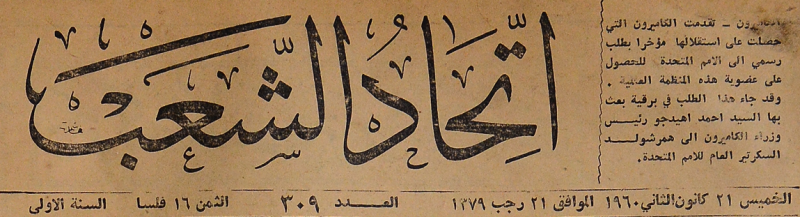 اتحاد الشعب
الكاميرون ـ تقدمت الكاميرون التي
حصلت على استقلالها مؤخرا بطلب
رسمي الى الامم المتحدة للحصول
على عضوية هذه المنظمة العالمية .
وقد جاء هذا الطلب في برقية بعث
بها السيد احمد اهيدجو رئيس
وزراء الكاميرون الى همرشولد
السكرتير العام للامم المتحدة.
الخميس ٢١ كانون الثاني ١٩٦٠ الموافق ٢١ رجب ١٣٧٩ العدد ٣٠٩ الثمن ١٦ فلسا السنة الاولى